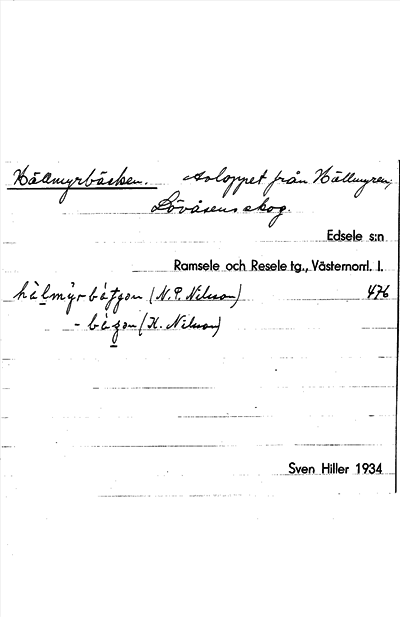 Hällmyrbäcken. Avloppet från Hällmyren,
Lövåsens skog.
Edsele s:n
Ramsele och Resele tg., Västernorrl. l.
(N.P. Nilsson) 476
(K. Nilsson)
Sven Hiller 1934